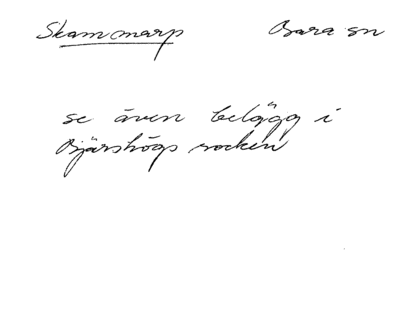 Skammarp Bara sn
se även belägg i
Bjärshögs socken